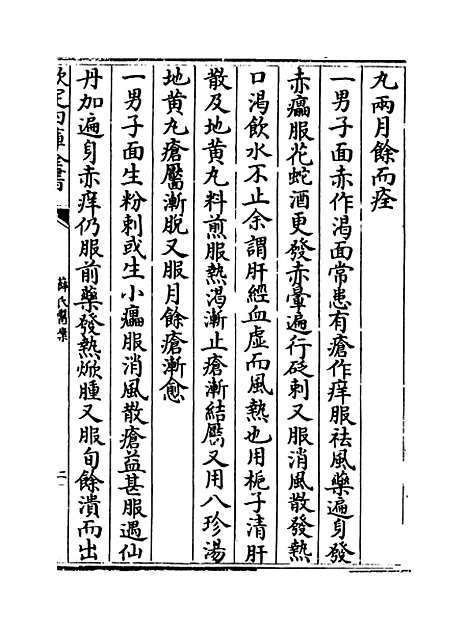 九兩月餘而痊
一男子面赤作渴面常患有瘡作痒服祛風藥遍身發
赤㿔服花蛇酒更發赤暈遍行砭刺又服消風散發熱
口渴飲水不止余謂肝經血虛而風熱也用梔子清肝
散及地黄丸料煎服熱渴漸止瘡漸結靨又用八珍湯
地黄丸瘡靨漸脫又服月餘瘡漸愈
一男子面生粉刺或生小㿔服消風散瘡益甚服遇仙
丹加遍身赤痒仍服前藥發熱焮腫又服旬餘潰而出
欽定四庫全書
薛氏醫案